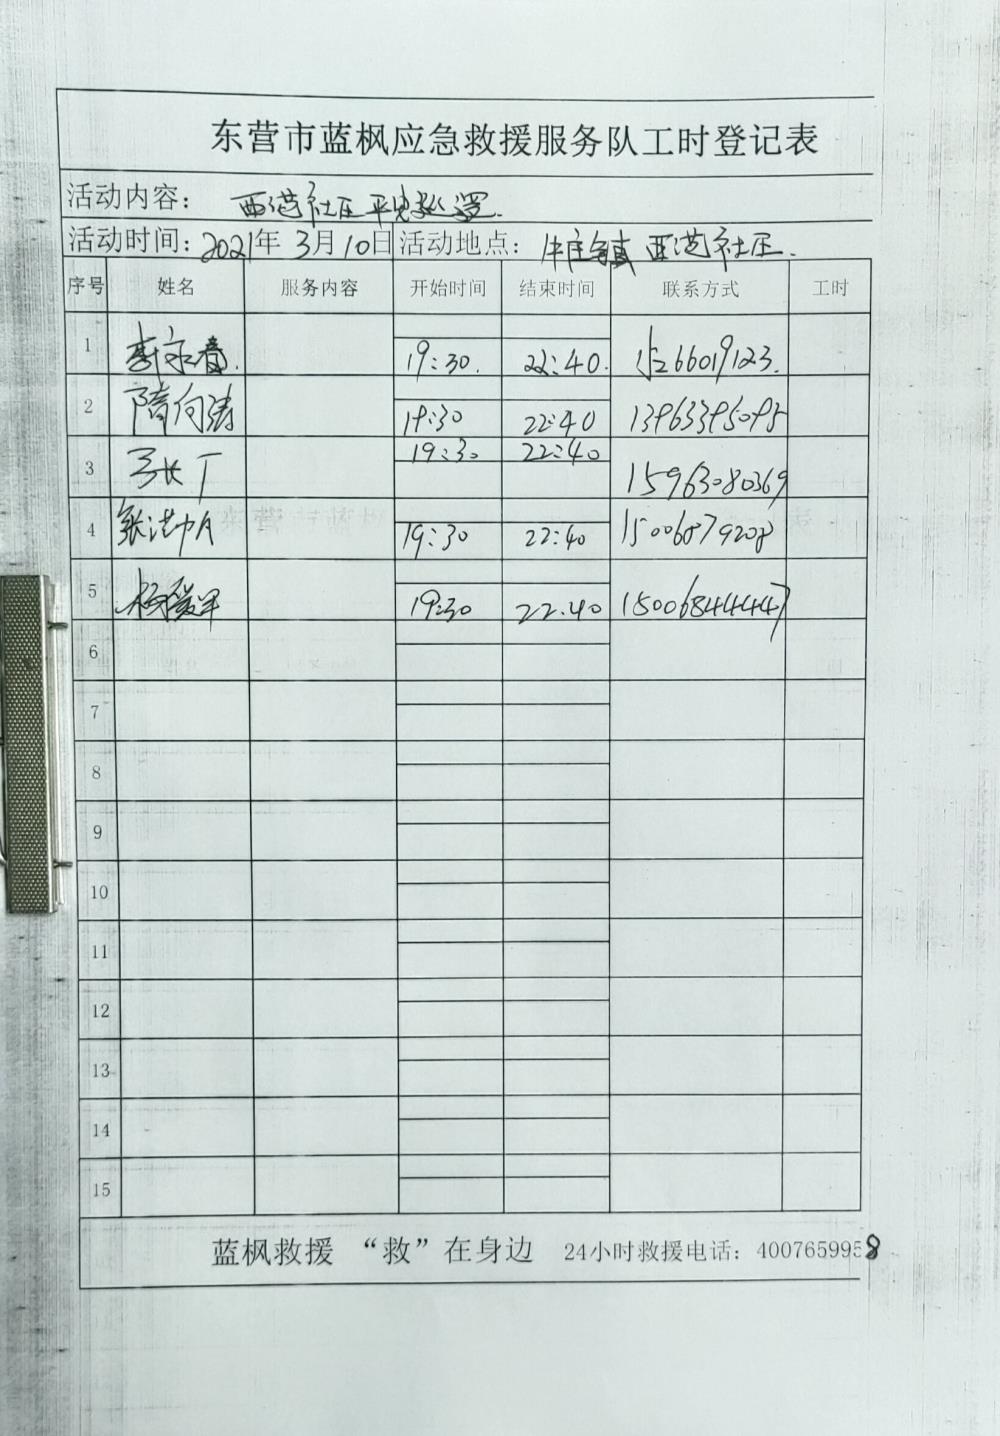 东营市蓝枫应急救援服务队工时登记表
活动内容: 西范社区
活动时间: 2021年 3月 10日 活动地点: 牛庄镇 西范社区.
序号 姓名 服务内容 开始时间 结束时间 联系方式 工时
1 李永春. 19:30. 22:40.
2 隋向涛 19:30 22:40 13963395095
3 张广 19:30 22:40 15963080369
4 19:30 22:40 15006879208
5 19:30 22.40 15006844447
6
7
8
9
10
11
12
13
14
15
蓝枫救援 “救”在身边 24小时救援电话: 4007659958